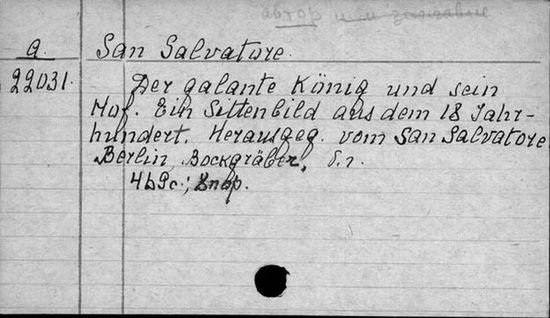 автор или заглавие
a. San Salvatore.
22031. Der galante König und sein
Hof. Ein Sittenbild aus dem 18 Jahr-
hundert. Herausgeg. vom San Salvatore
Berlin, Bockgräber, s.a.